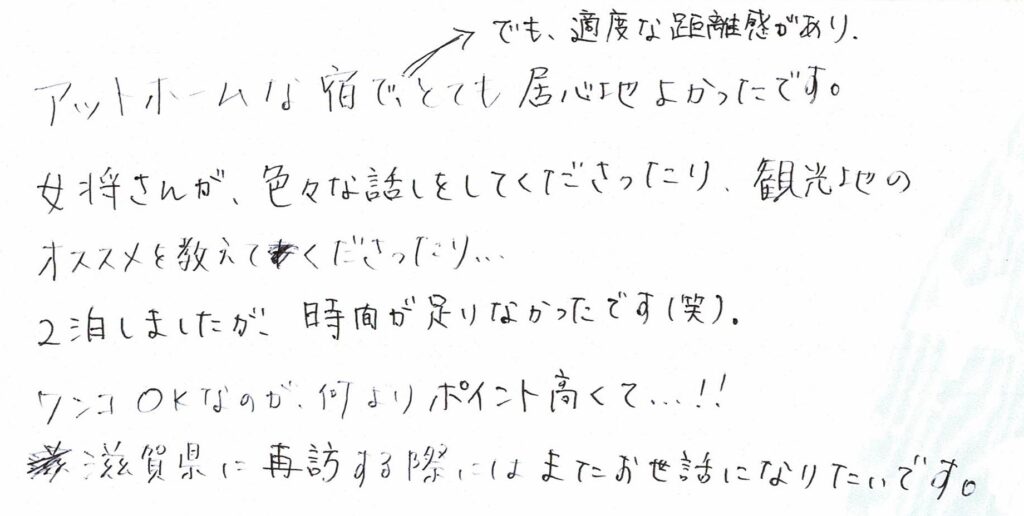 でも、適度な距離感があり、
アットホームな宿で、とても居心地よかったです。
女将さんが、色々な話しをしてくださったり、観光地の
オススメを教えてくださったり…
2泊しましたが、時間が足りなかったです(笑)。
ワンコOKなのが、何よりポイント高くて…!!
滋賀県に再訪する際にはまたお世話になりたいです。